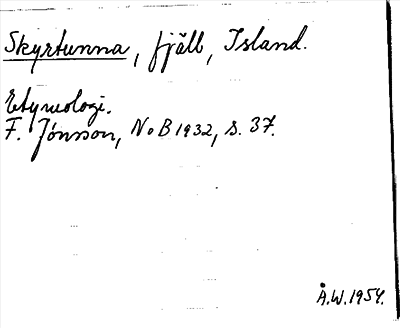 Skyrtunna, fjäll, Island.
Etymologi.
F. Jónsson, NoB 1932, s. 37.
Å.W. 1954.